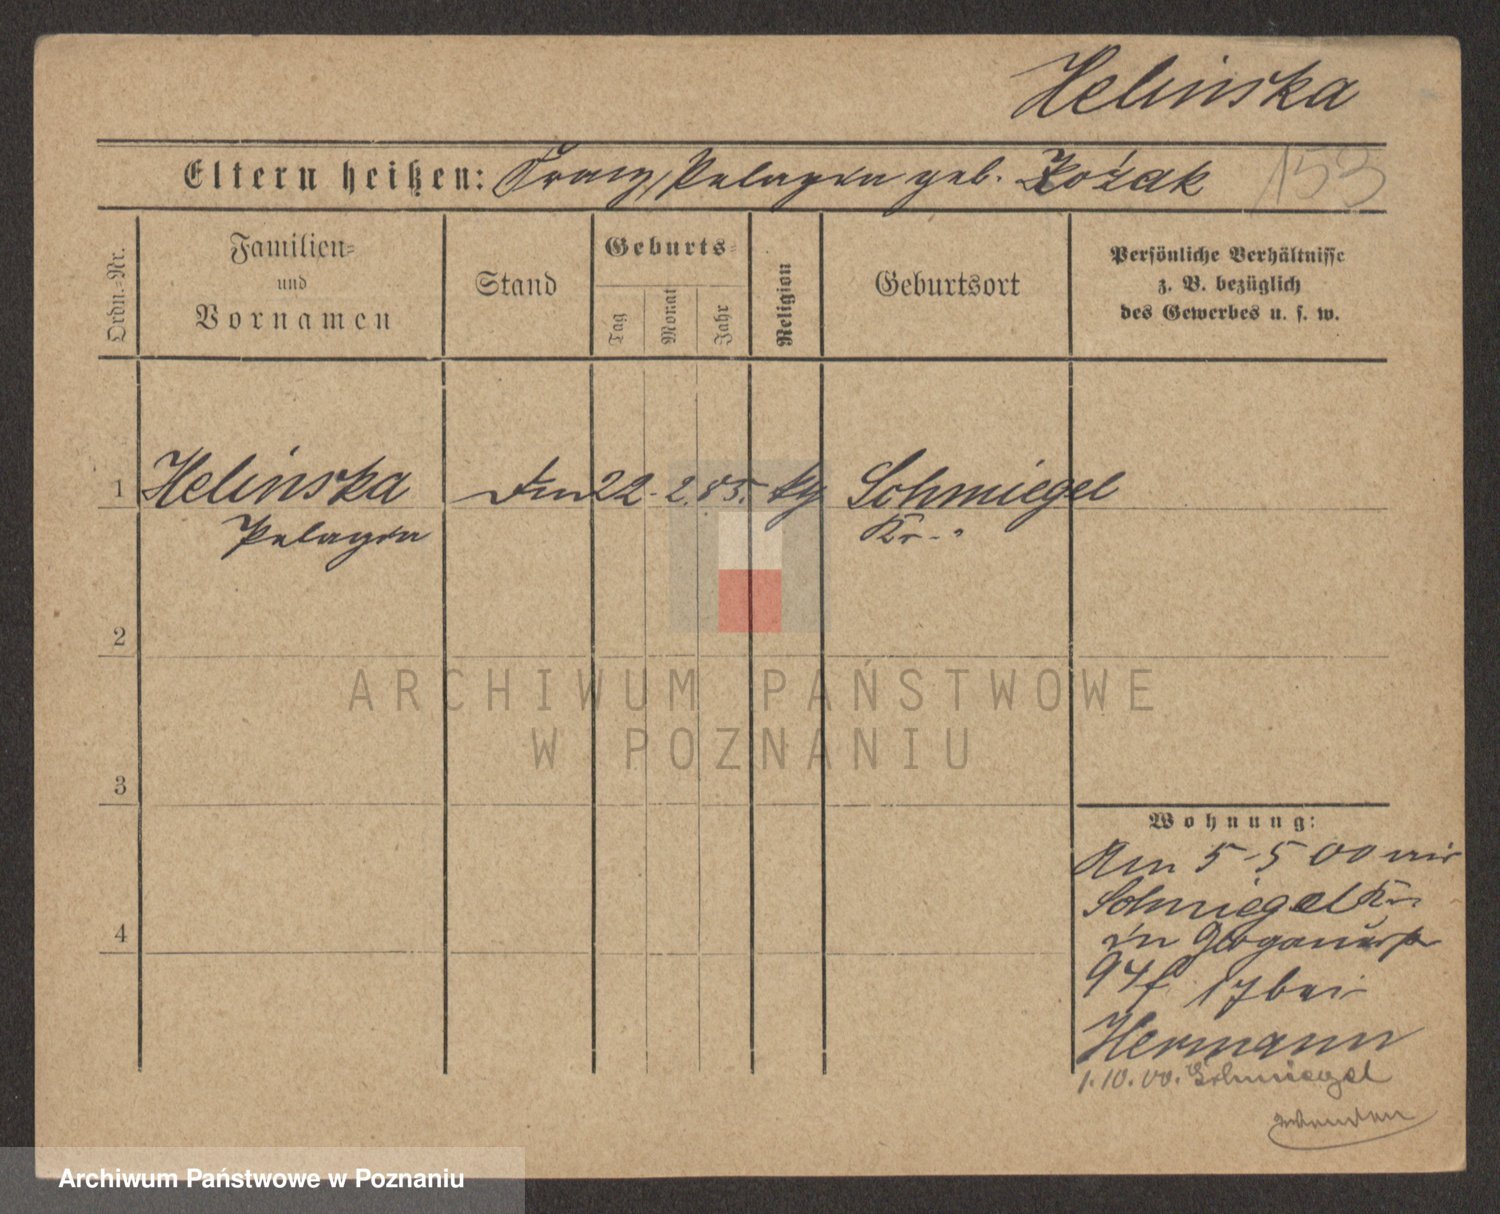 Helinska
Eltern heißen: Franz, Pelagia geb. Kożak 153
Ordn.-Nr.
Familien-
und
Vornamen
Stand
Geburts-
Tag
Monat
Jahr
Religion
Geburtsort
Persönliche Verhältnisse
z. B. bezüglich
des Gewerbes u. s. w.
1 Helinska 22. 2. 85. Schmiegel
Pelagia Kr.
2
3
4
ARCHIWUM PAŃSTWOWE
W POZNANIU
Wohnung:
Am 5 5 00 aus
Schmiegel Kr.
in
17 bei
Hermann
1. 10. 00. Schmiegel
wenden
Archiwum Państwowe w Poznaniu